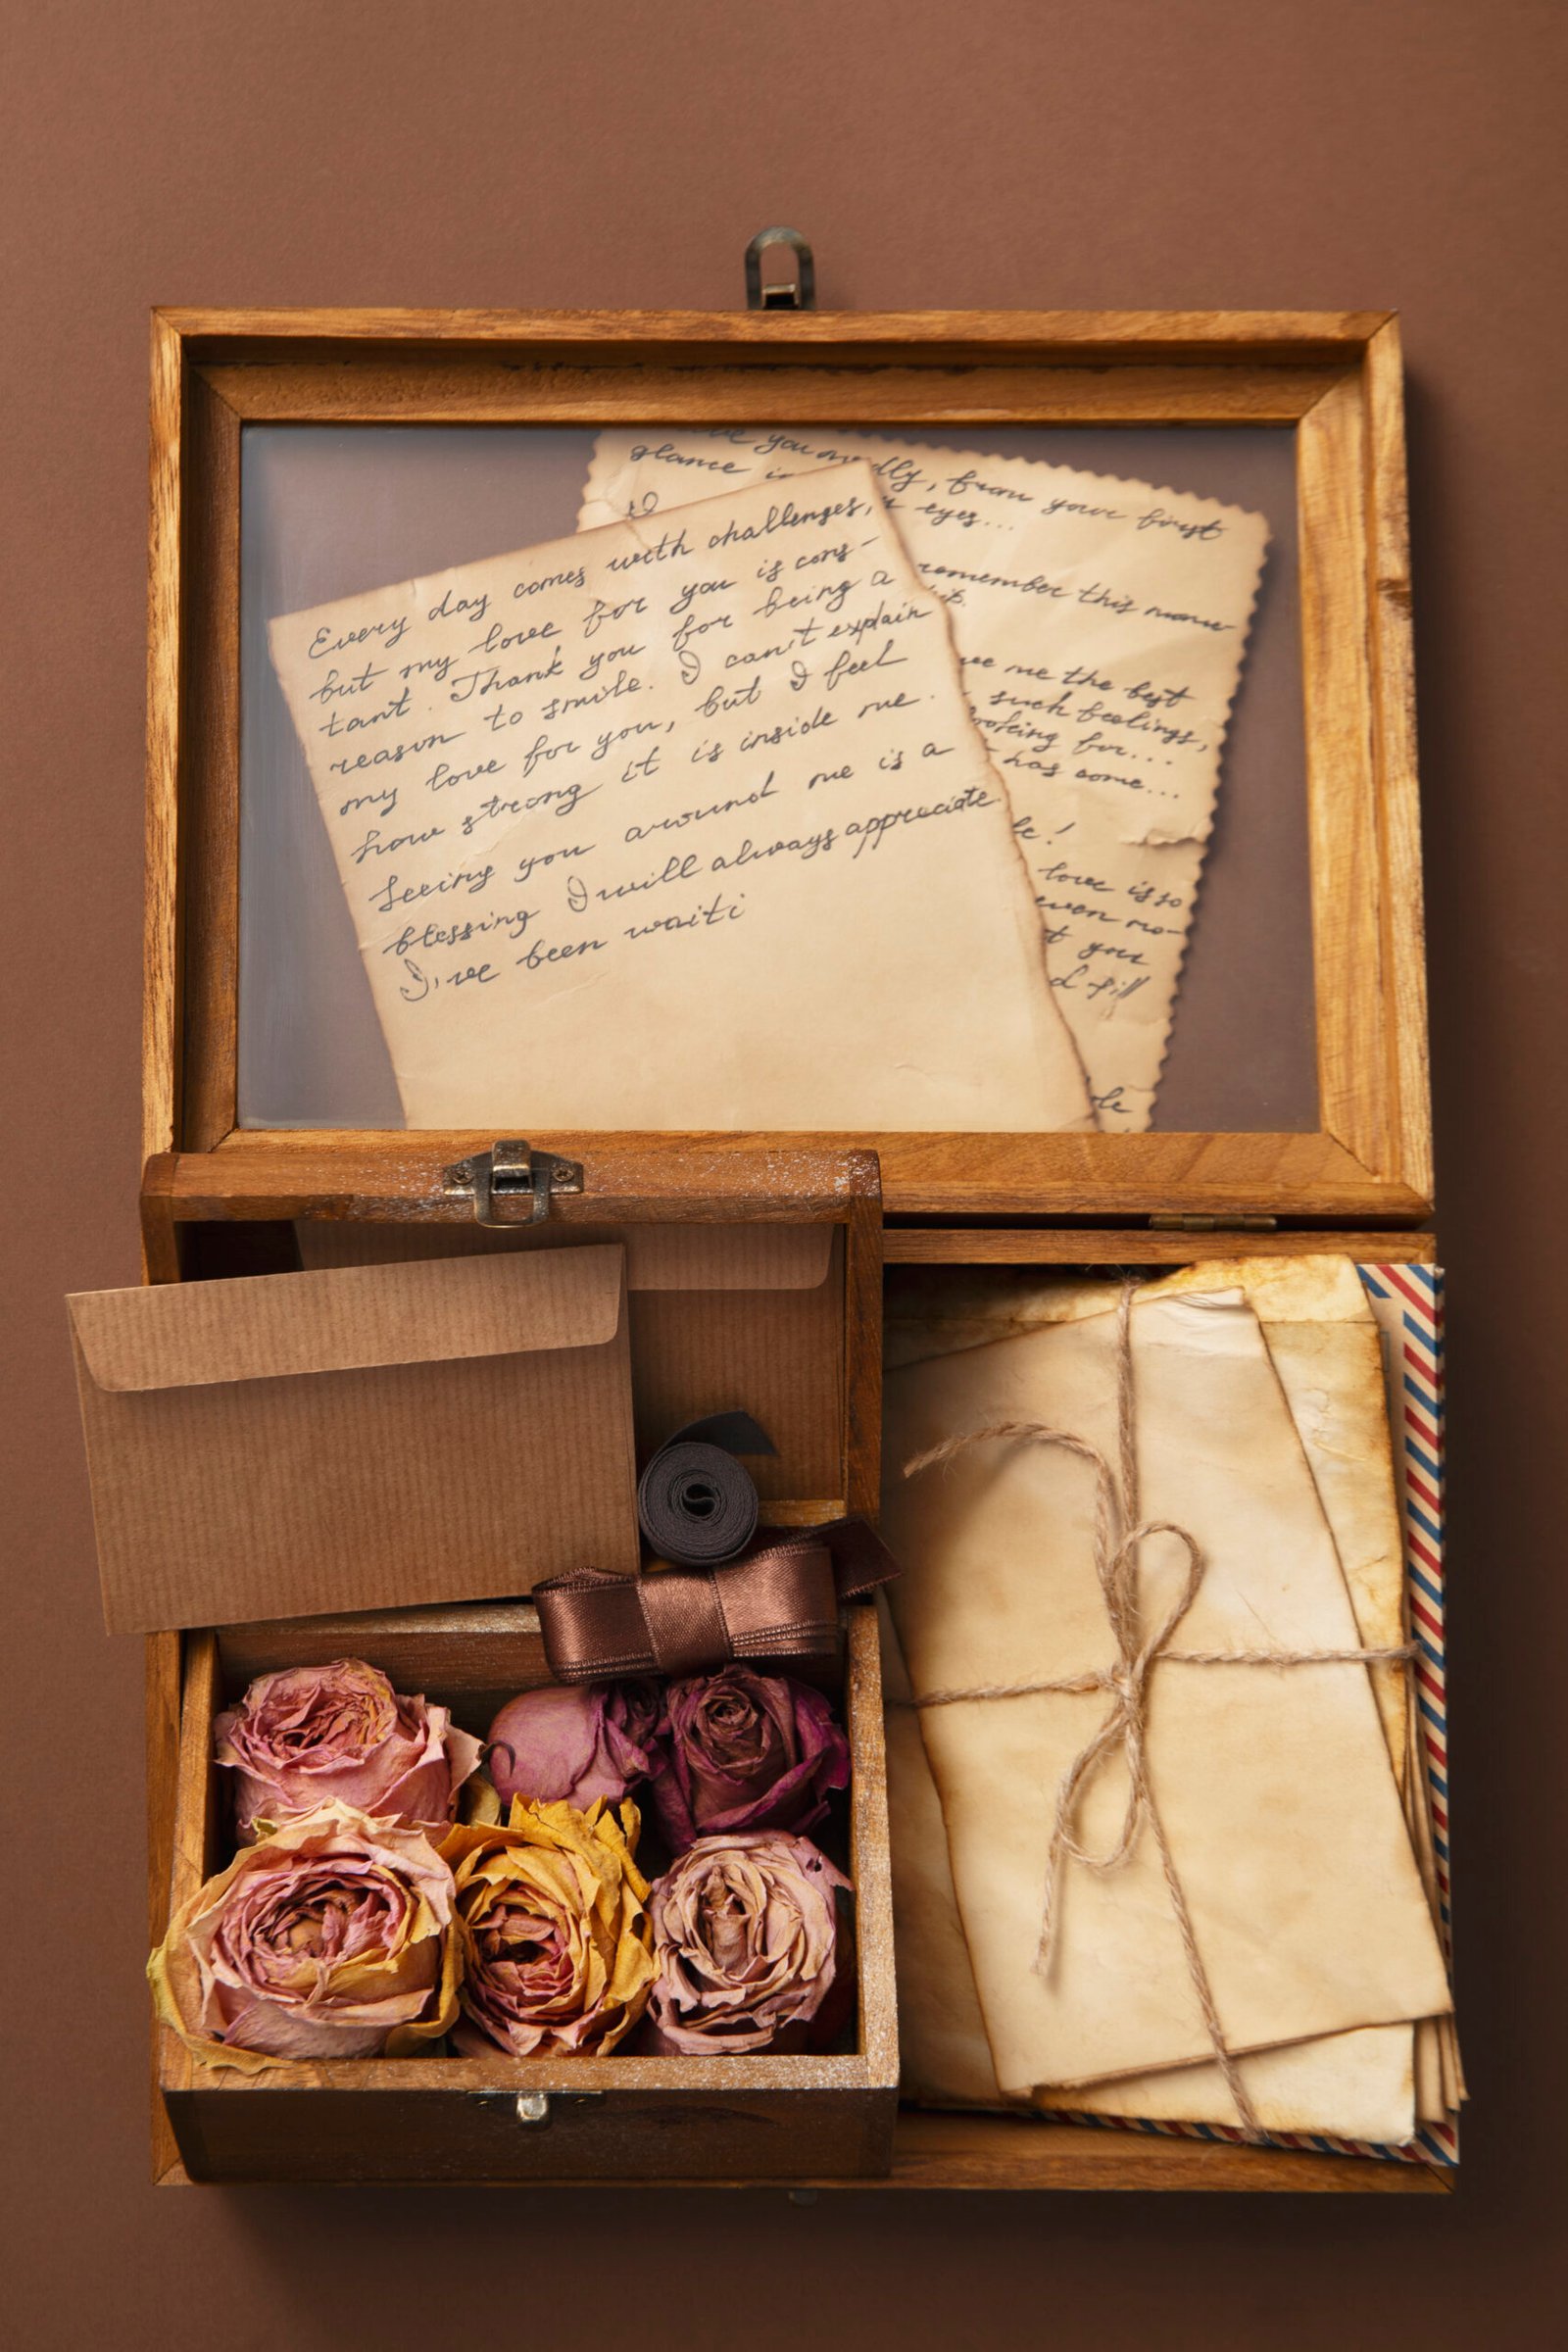 Every day comes with challenges,
but my love for you is cons-
tant. Thank you for being a
reason to smile. I can't explain
my love for you, but I feel
how strong it is inside me.
Seeing you around me is a
blessing I will always appreciate
I've been waiti
you madly, from your first
glance in eyes...
remember this mome-
me the best
such feelings,
looking for...
has come...
love is so
even mo-
you
fill